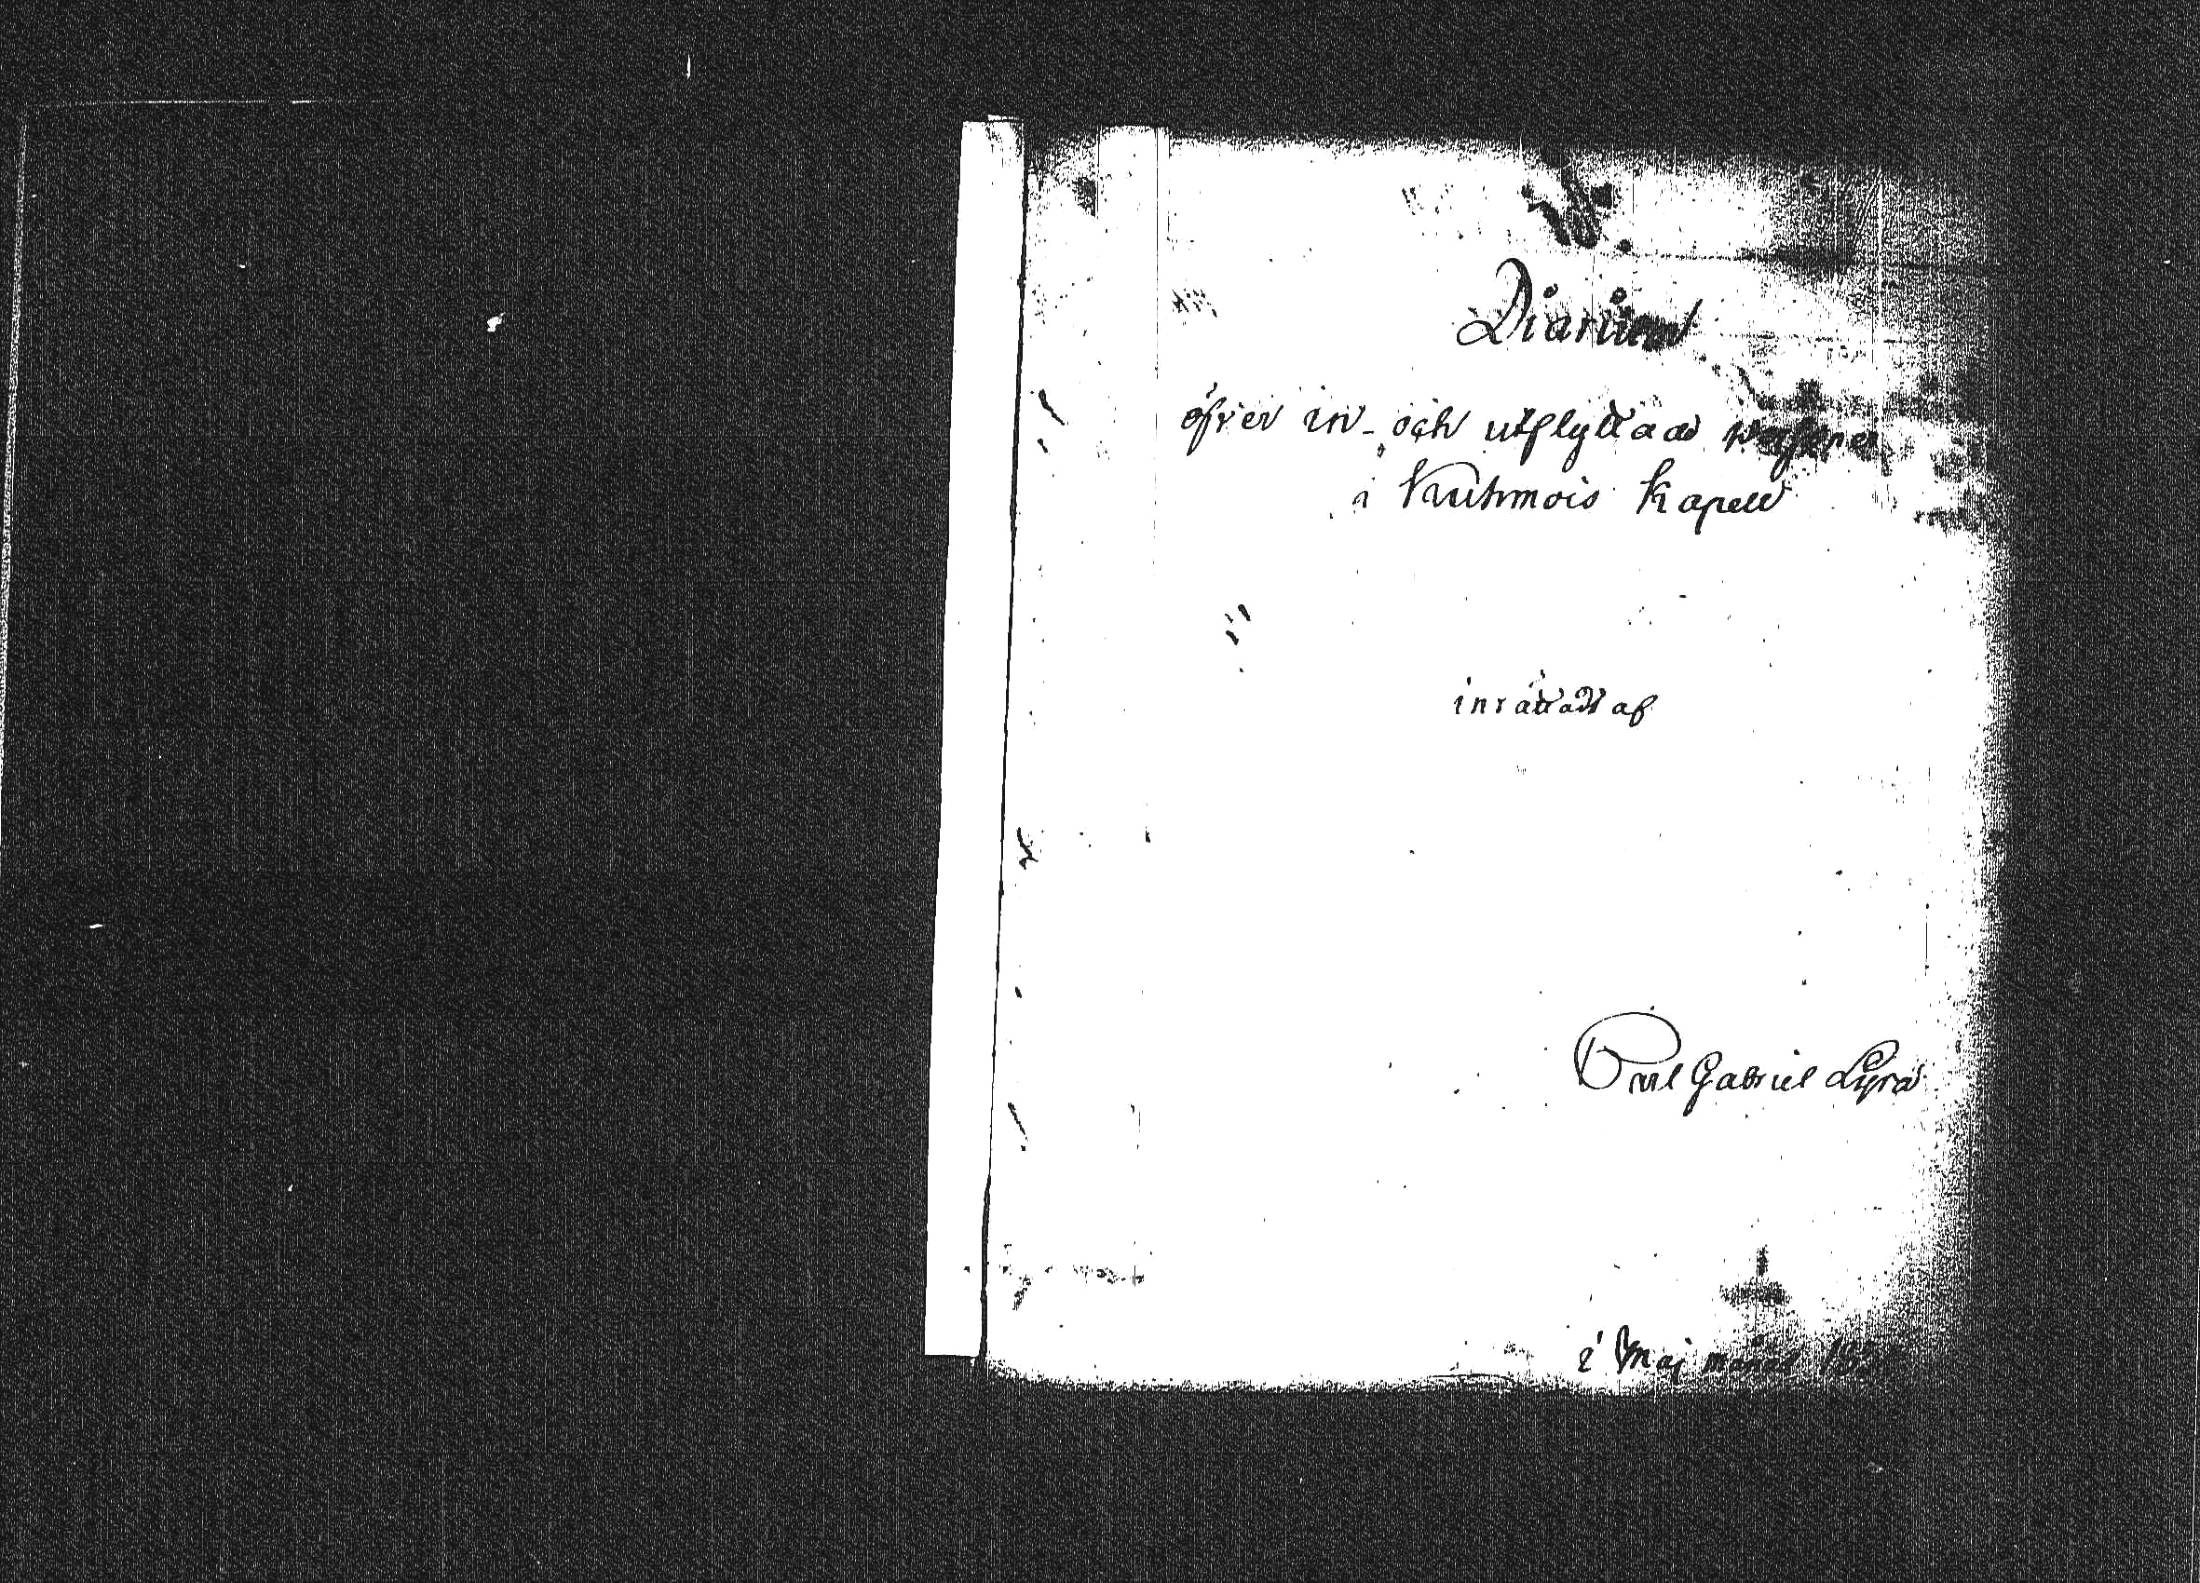 Diarium
öfver in- och utflyttade
i Kuhmois Kapell
inrättadt af
Carl Gabriel Lyra
i Maj månad